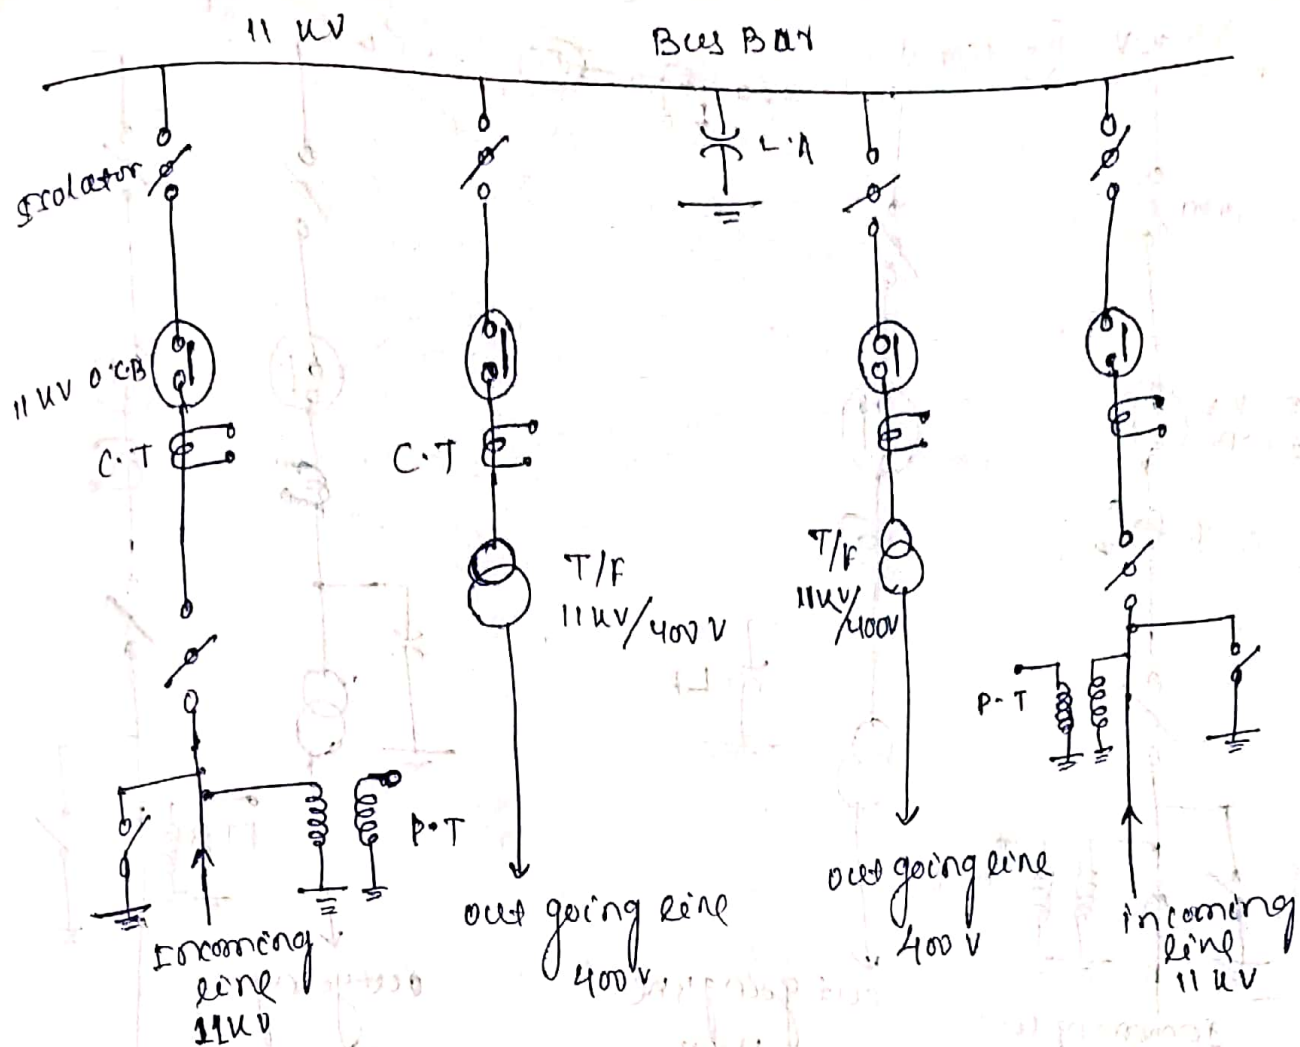 11 KV
Bus Bar
L.A
Isolator
11 KV O.C.B
C.T
C.T
T/F
11KV/400 V
T/F
11KV
/400V
P.T
P.T
out going line
400 V
out going line
400 V
Incoming
line
11KV
incoming
line
11 KV